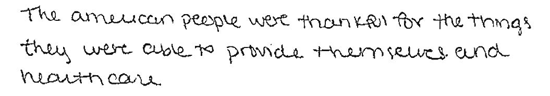 The american people were thankful for the things
they were able to provide themselves and
healthcare.